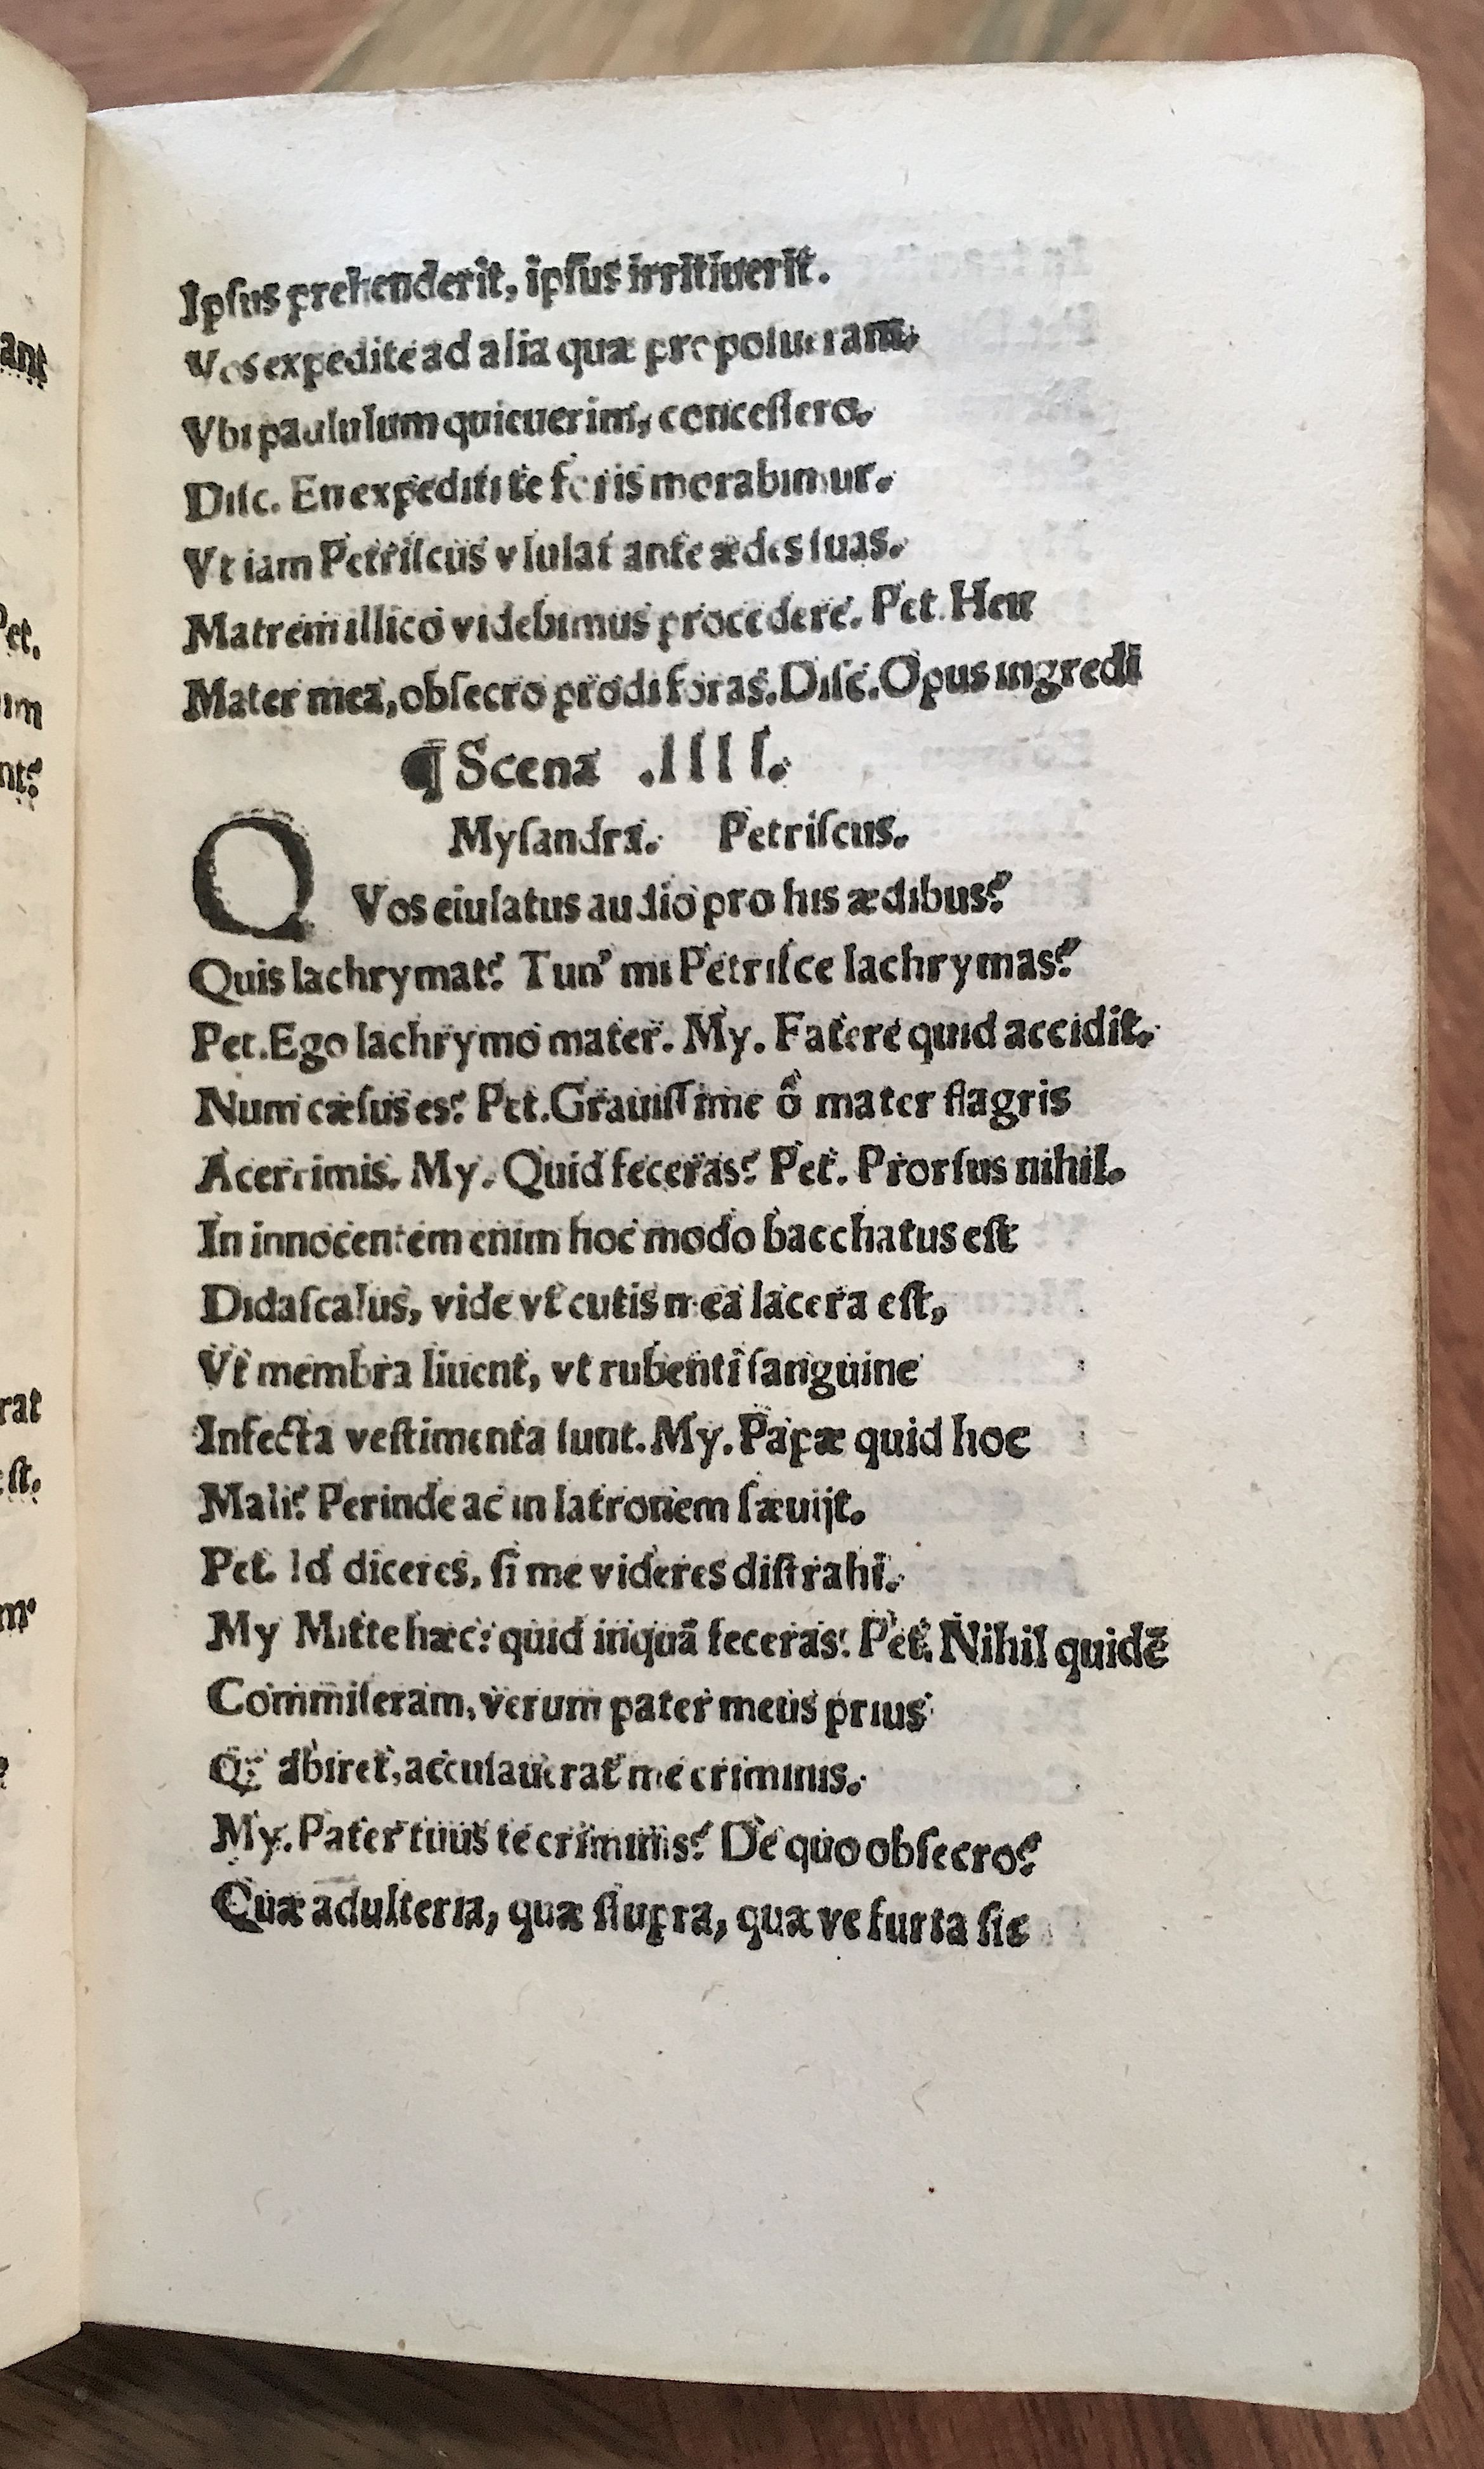 Ipſus prehenderit, ipſus irritiuerit.
Vos expedite ad alia quæ propoſueram,
Vbi paululum quieuerim, conceſſero.
Diſc. En expediti te foris morabimur.
Vt iam Petriſcus vlulat ante ædes ſuas.
Matrem illico videbimus procedere. Pet. Heu
Mater mea, obſecro prodi foras. Diſc. Opus ingredi
¶ Scena .IIII.
Myſandra. Petriſcus.
QVos eiulatus audio pro his ædibus?
Quis lachrymat? Tun' mi Petriſce lachrymas?
Pet. Ego lachrymo mater. My. Fatere quid accidit.
Num cæſus es? Pet. Grauiſſime ô mater flagris
Acerrimis. My. Quid feceras? Pet. Prorſus nihil.
In innocentem enim hoc modo bacchatus eſt
Didaſcalus, vide vt cutis mea lacera eſt,
Vt membra liuent, vt rubenti ſanguine
Infecta veſtimenta ſunt. My. Papæ quid hoc
Mali? Perinde ac in latronem ſæuijt.
Pet. Id diceres, ſi me videres diſtrahi.
My Mitte hæc: quid inquā feceras? Pet. Nihil quidē
Commiſeram, verum pater meus prius
abiret, accuſauerat me criminis.
My. Pater tuus te criminis? De quo obſecro?
Quæ adulteria, quæ ſtupra, quæ ve furta ſic
ant
Pet.
um
nt?
rat
ſt.